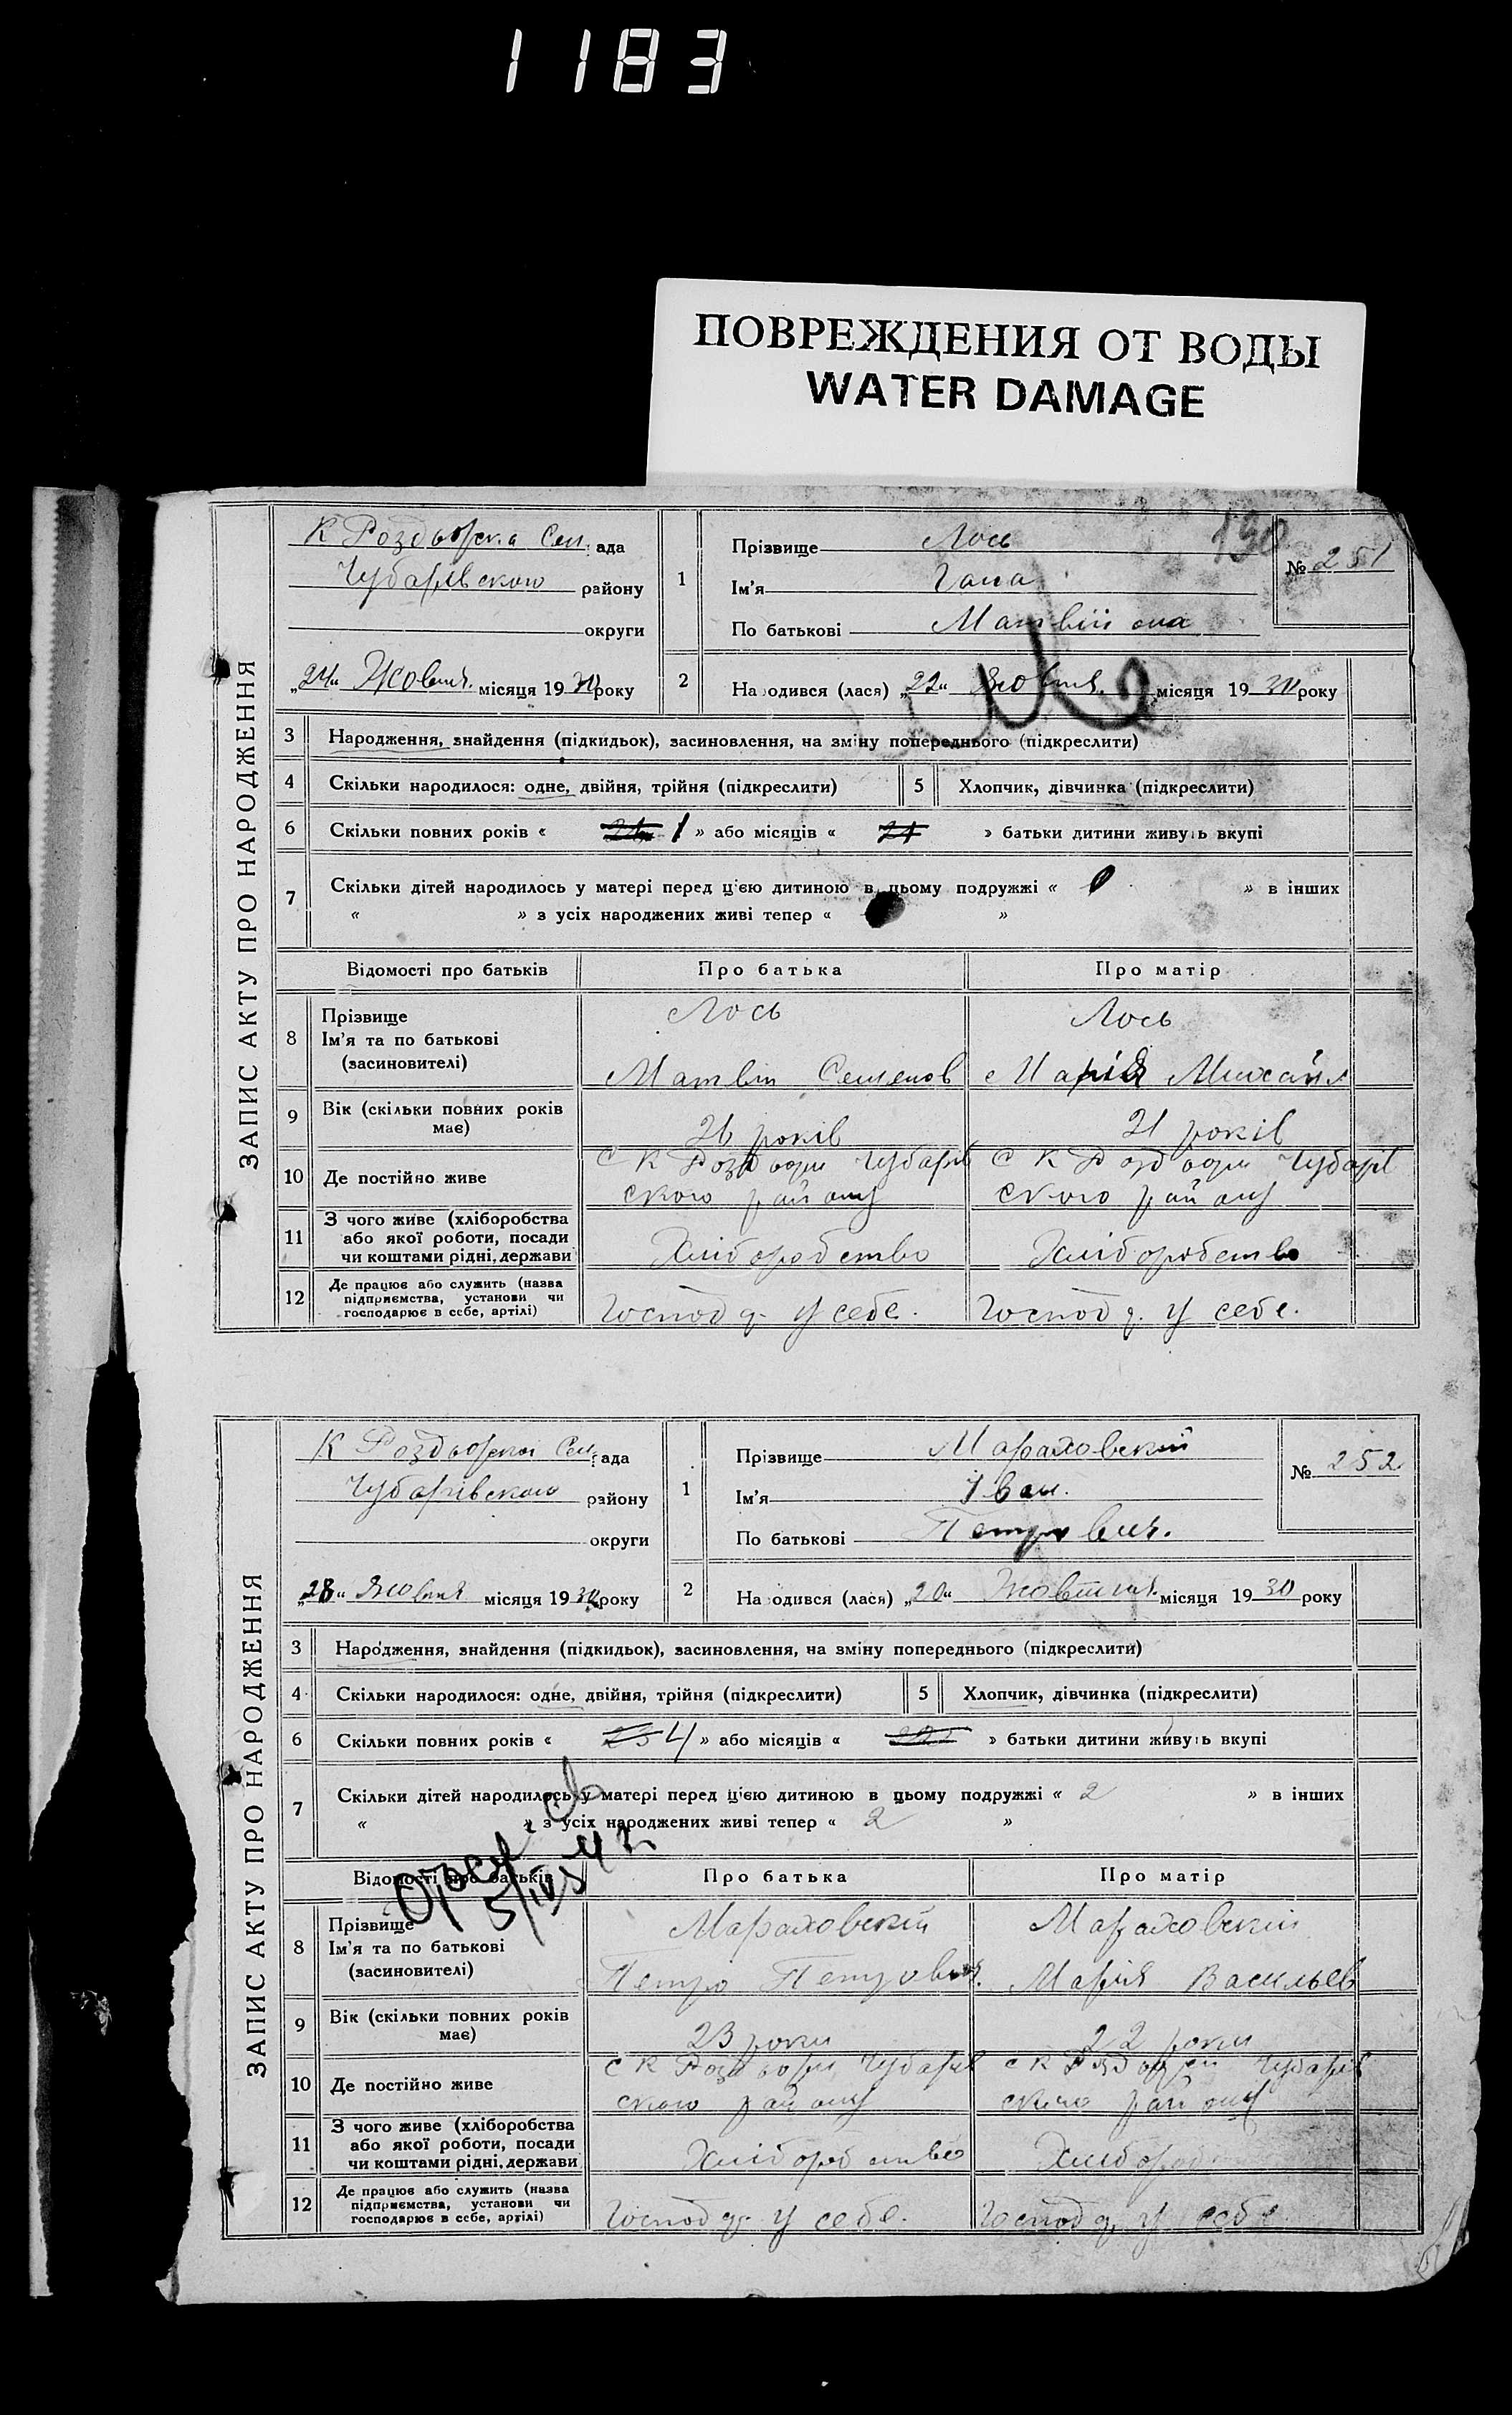 1183
ПОВРЕЖДЕНИЯ ОТ ВОДЫ
WATER DAMAGE
ЗАПИС АКТУ ПРО НАРОДЖЕННЯ
К Роздорска Сел. ада
Чубарівського району
округи
„24“ Жовтня. місяця 1930 року
1
Прізвище Лось
Ім'я Гана
По батькові Матвіївна
190
№ 251
2
На одився (лася) „22“ Жовтня. місяця 1930 року
3 Народження, знайдення (підкидьок), засиновлення, на зміну попереднього (підкреслити)
4 Скільки народилося: одне, двійня, трійня (підкреслити) 5 Хлопчик, дівчинка (підкреслити)
6 Скільки повних років « 1 » або місяців « 21 » батьки дитини живуть вкупі
7 Скільки дітей народилось у матері перед цією дитиною в цьому подружжі « 0 » в інших
« » з усіх народжених живі тепер « »
Відомості про батьків Про батька Про матір
8 Прізвище
Ім'я та по батькові
(засиновителі)
Лось Лось
Матвій Семенов Марія Михайл
9 Вік (скільки повних років має)
21 років
10 Де постійно живе
С К Роздори Чубарів С К Роздори Чубарів
ского району ского району
11 З чого живе (хліборобства
або якої роботи, посади
чи коштами рідні, держави
Хліборобство Хліборобство
12 Де працює або служить (назва
підприємства, установи чи
господарює в себе, артілі)
Господ у себе. Господ у себе.
ЗАПИС АКТУ ПРО НАРОДЖЕННЯ
К Роздорскої Сел. ада
Чубарівського району
округи
„28“ Жовтня місяця 1930 року
1
Прізвище Мараховский
Ім'я Іван.
По батькові Петрович.
№ 252
2
На одився (лася) „20“ Жовтня. місяця 1930 року
3 Народження, знайдення (підкидьок), засиновлення, на зміну попереднього (підкреслити)
4 Скільки народилося: одне, двійня, трійня (підкреслити) 5 Хлопчик, дівчинка (підкреслити)
6 Скільки повних років « 23 4 » або місяців « 22 » батьки дитини живуть вкупі
7 Скільки дітей народилось у матері перед цією дитиною в цьому подружжі « 2 » в інших
« » з усіх народжених живі тепер « 2 »
Відомості про батьків Про батька Про матір
8 Прізвище
Ім'я та по батькові
(засиновителі)
Мараховский Мараховский
Петро Петрович. Марія Васильев
9 Вік (скільки повних років має)
23 роки 22 роки
10 Де постійно живе
С К Роздори Чубарів С К Роздори Чубарів
ского району ского району
11 З чого живе (хліборобства
або якої роботи, посади
чи коштами рідні, держави
Хліборобство Хлібороб
12 Де працює або служить (назва
підприємства, установи чи
господарює в себе, артілі)
Господ у себе. Господ у себе